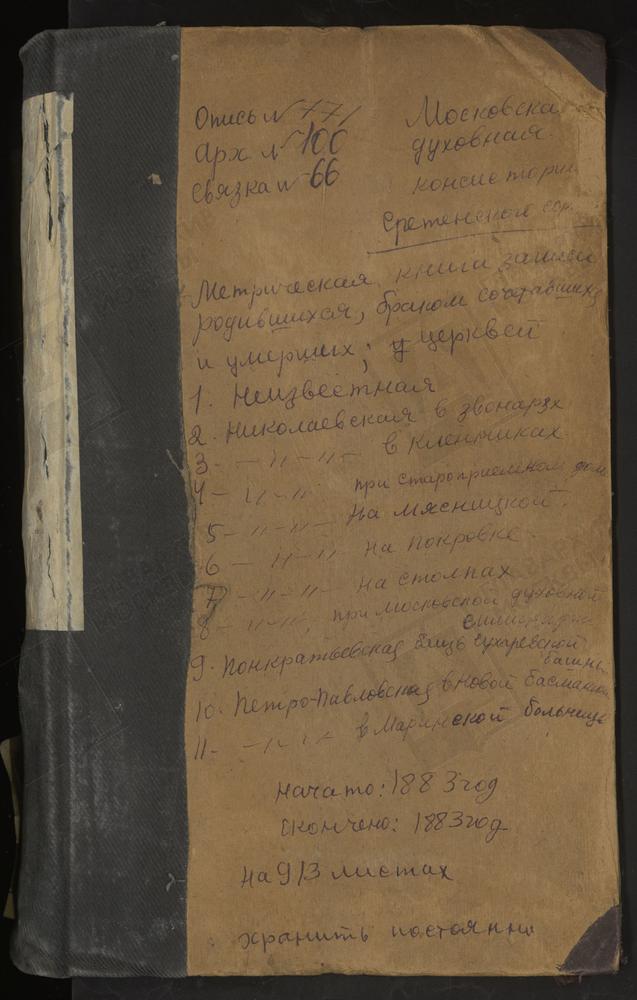 Опись № 771
Арх № 100
Связка № 66
Московска
духовная
консистори
Сретенского сор.
Метрическая книга записи
родившихся, браком сочетавшихся
и умерших; у церквей
1. Неизвестная
2. Николаевская в звонарях
3 - -"-"- в кленниках
4 - "-"- при староприемном дом
5 - "-"- на мясницкой
6 - "-"- на покровке
7 - "-"- на столпах
8 - "-"- при московской духовной
семинарии
9. Понкратьевская близь Сухаревской
башни
10. Петро-Павловская в новой басманной
11 - -"-"- в Маринской больнице
Начато: 1883 год
Окончено: 1883 год
На 913 листах
хранить постоянно